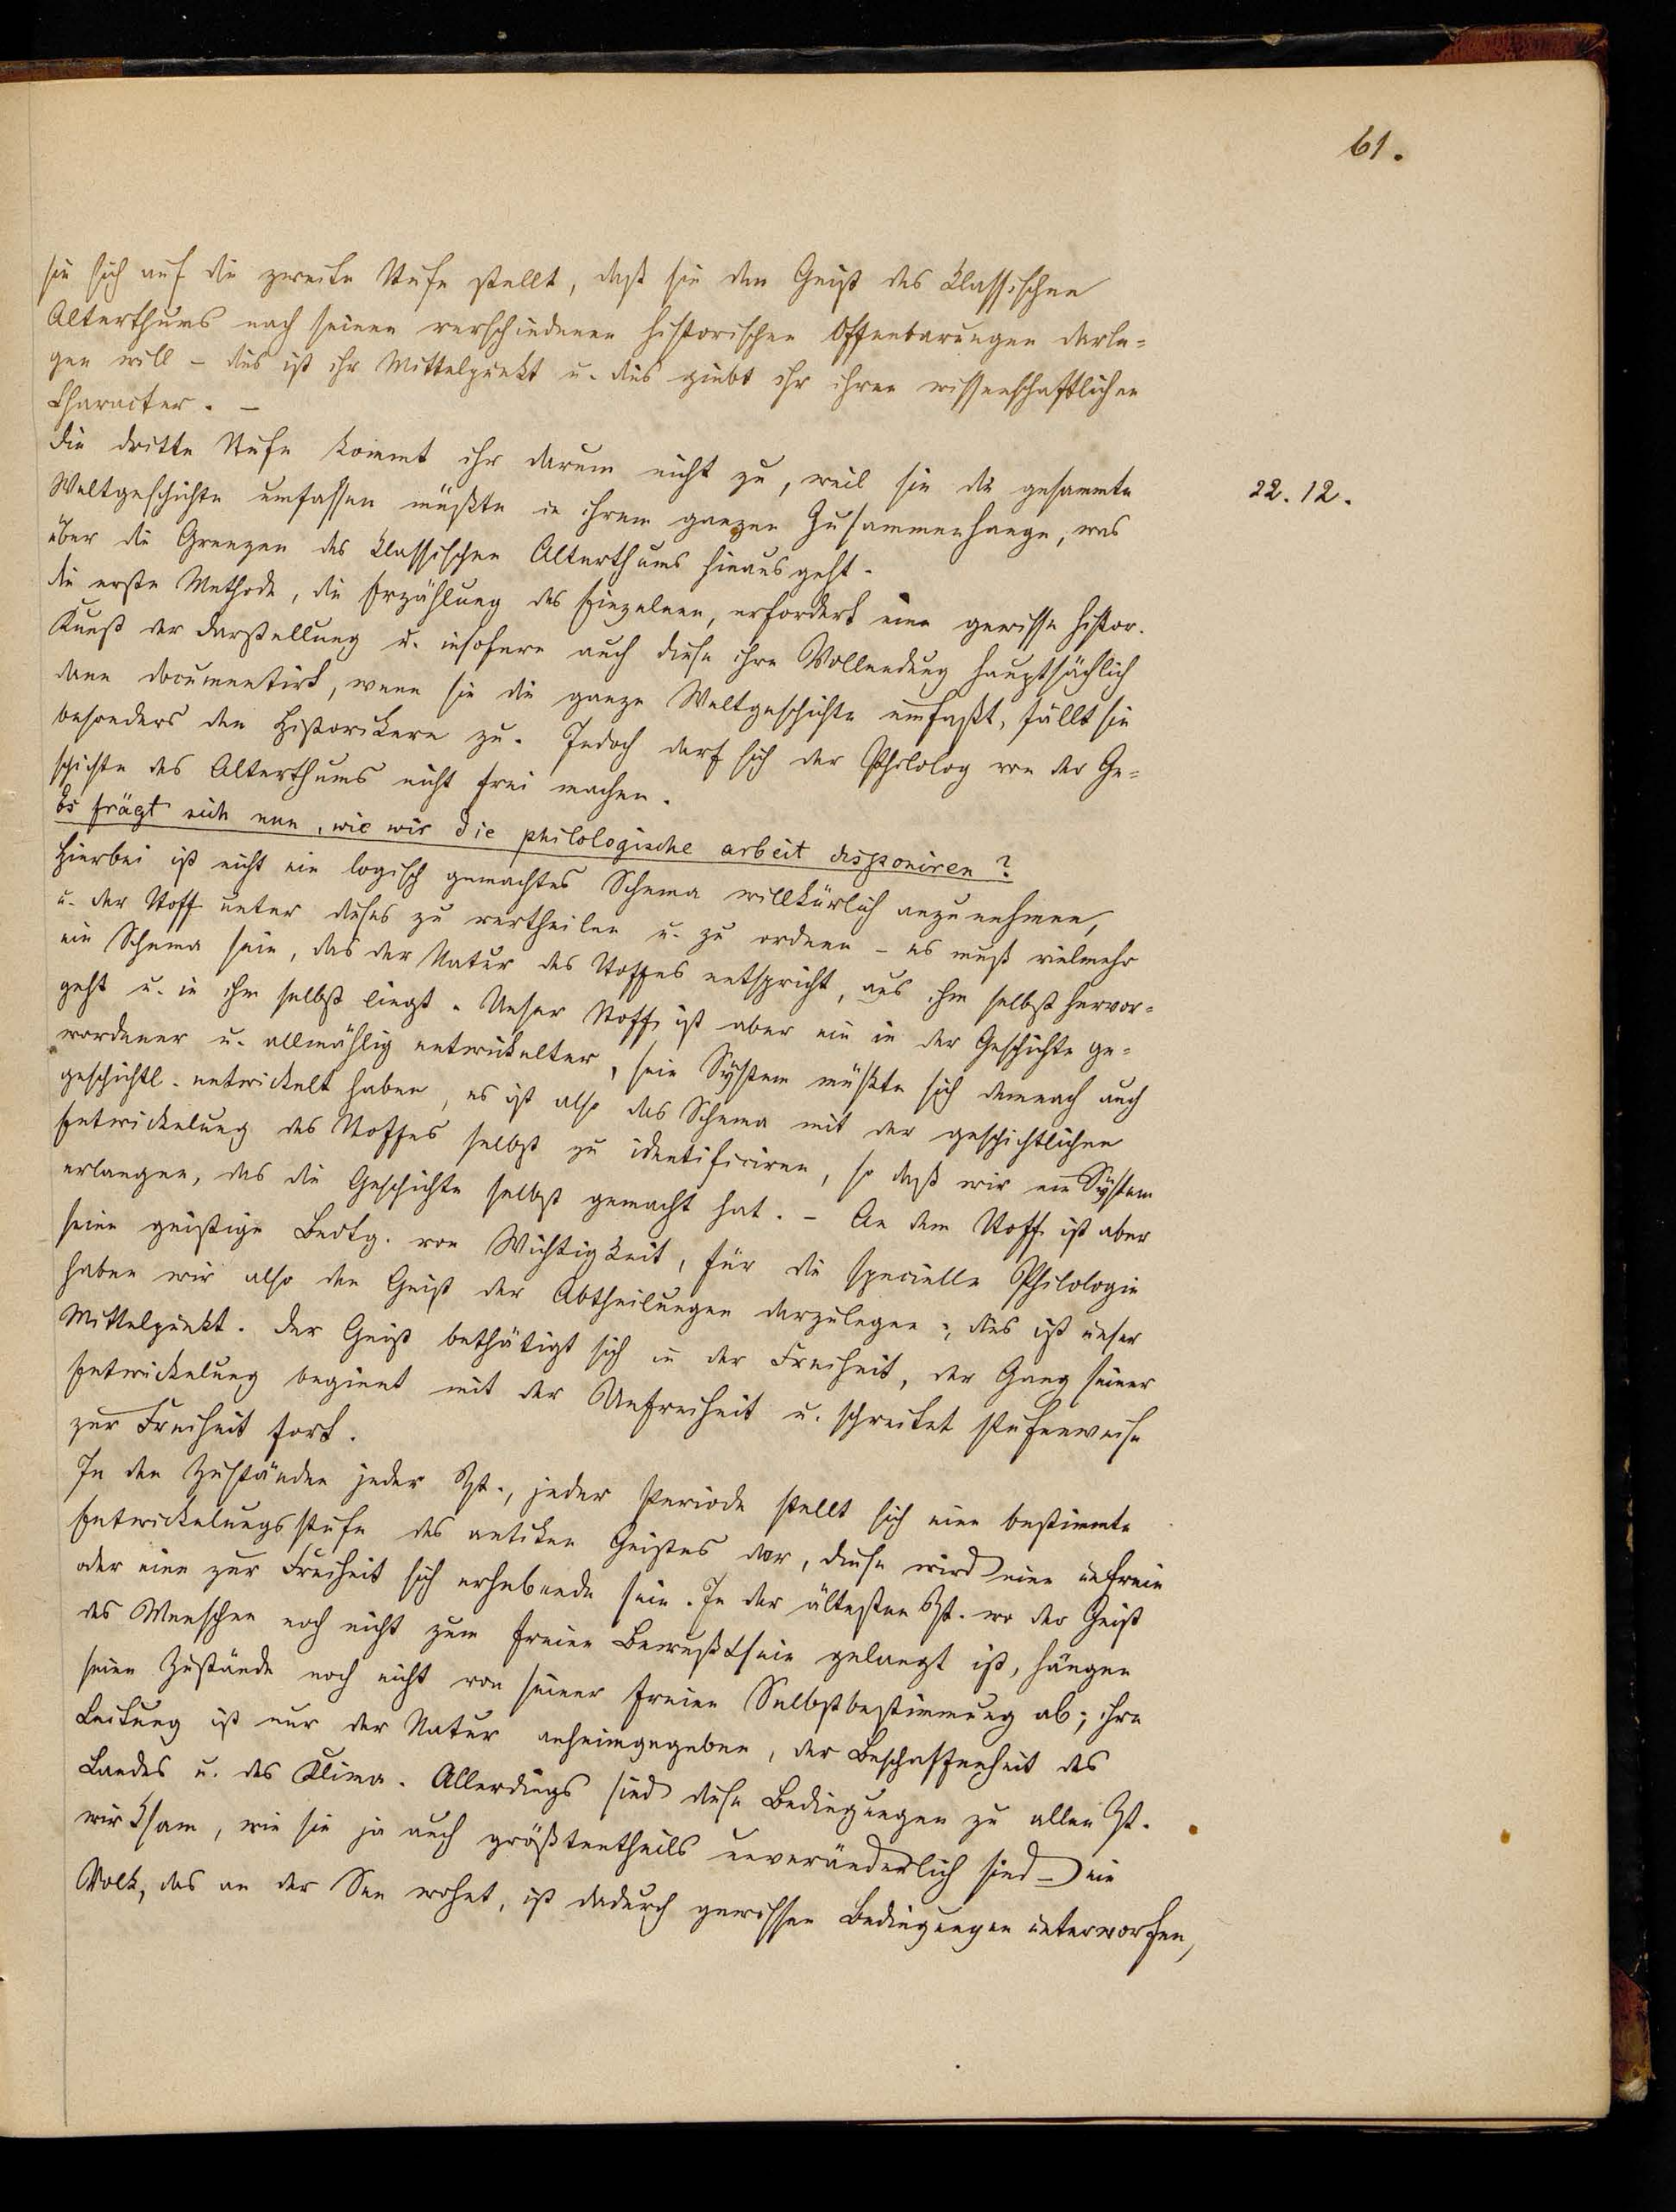 61.
sie sich auf die zweite Stufe stellt, daß sie den Geist des klassischen
Alterthums nach seinen verschiedenen historischen Offenbarungen darle-
gen will – dies ist ihr Mittelpunkt u. dies giebt ihr ihren wissenschaftlichen
Character. –
Die dritte Stufe kommt ihr darum nicht zu, weil sie die gesammte
22. 12.
Weltgeschichte umfassen müßte in ihrem ganzen Zusammenhange, was
über die Grenzen des klassischen Alterthums hinausgeht.
Die erste Methode, die Erzählung des Einzelnen, erfordert eine gewisse histor.
Kunst der Darstellung u. insofern auch diese ihre Vollendung hauptsächlich
dann documentirt, wenn sie die ganze Weltgeschichte umfaßt, fällt sie
besonders den Historikern zu. Jedoch darf sich der Philolog von der Ge-
schichte des Alterthums nicht frei machen.
Es frägt sich nun, wie wir die philologische arbeit disponiren?
Hierbei ist nicht ein logisch gemachtes Schema willkürlich anzunehmen,
u. der Stoff unter dieses zu vertheilen u. zu ordnen – es muß vielmehr
ein Schema sein, das der Natur des Stoffes entspricht, aus ihm selbst hervor-
geht u. in ihm selbst liegt. Unser Stoff ist aber ein in der Geschichte ge-
wordener u. allmählig entwickelter, sein System müßte sich demnach auch
geschichtl. entwickelt haben, es ist also das Schema mit der geschichtlichen
Entwickelung des Stoffes selbst zu identificiren, so daß wir ein System
erlangen, das die Geschichte selbst gemacht hat. – An dem Stoff ist aber
seine geistige Bedtg. von Wichtigkeit, für die specielle Philologie
haben wir also den Geist der Abtheilungen darzulegen; dies ist unser
Mittelpunkt. Der Geist bethätigt sich in der Freiheit, der Gang seiner
Entwickelung beginnt mit der Unfreiheit u. schreitet stufenweise
zur Freiheit fort.
In den Zuständen jeder Zt., jeder Periode stellt sich eine bestimmte
Entwickelungsstufe des antiken Geistes dar, diese wird eine unfreie
oder eine zur Freiheit sich erhebende sein. In der ältesten Zt. wo der Geist
des Menschen noch nicht zum freien Bewußtsein gelangt ist, hängen
seine Zustände noch nicht von seiner freien Selbstbestimmung ab; ihre
Leitung ist nur der Natur anheimgegeben, der Beschaffenheit des
Landes u. des Klima. Allerdings sind diese Bedingungen zu allen Zt.
wirksam, wie sie ja auch größtentheils unveränderlich sind – ein
Volk, das an der See wohnt, ist dadurch gewissen Bedingungen unterworfen,